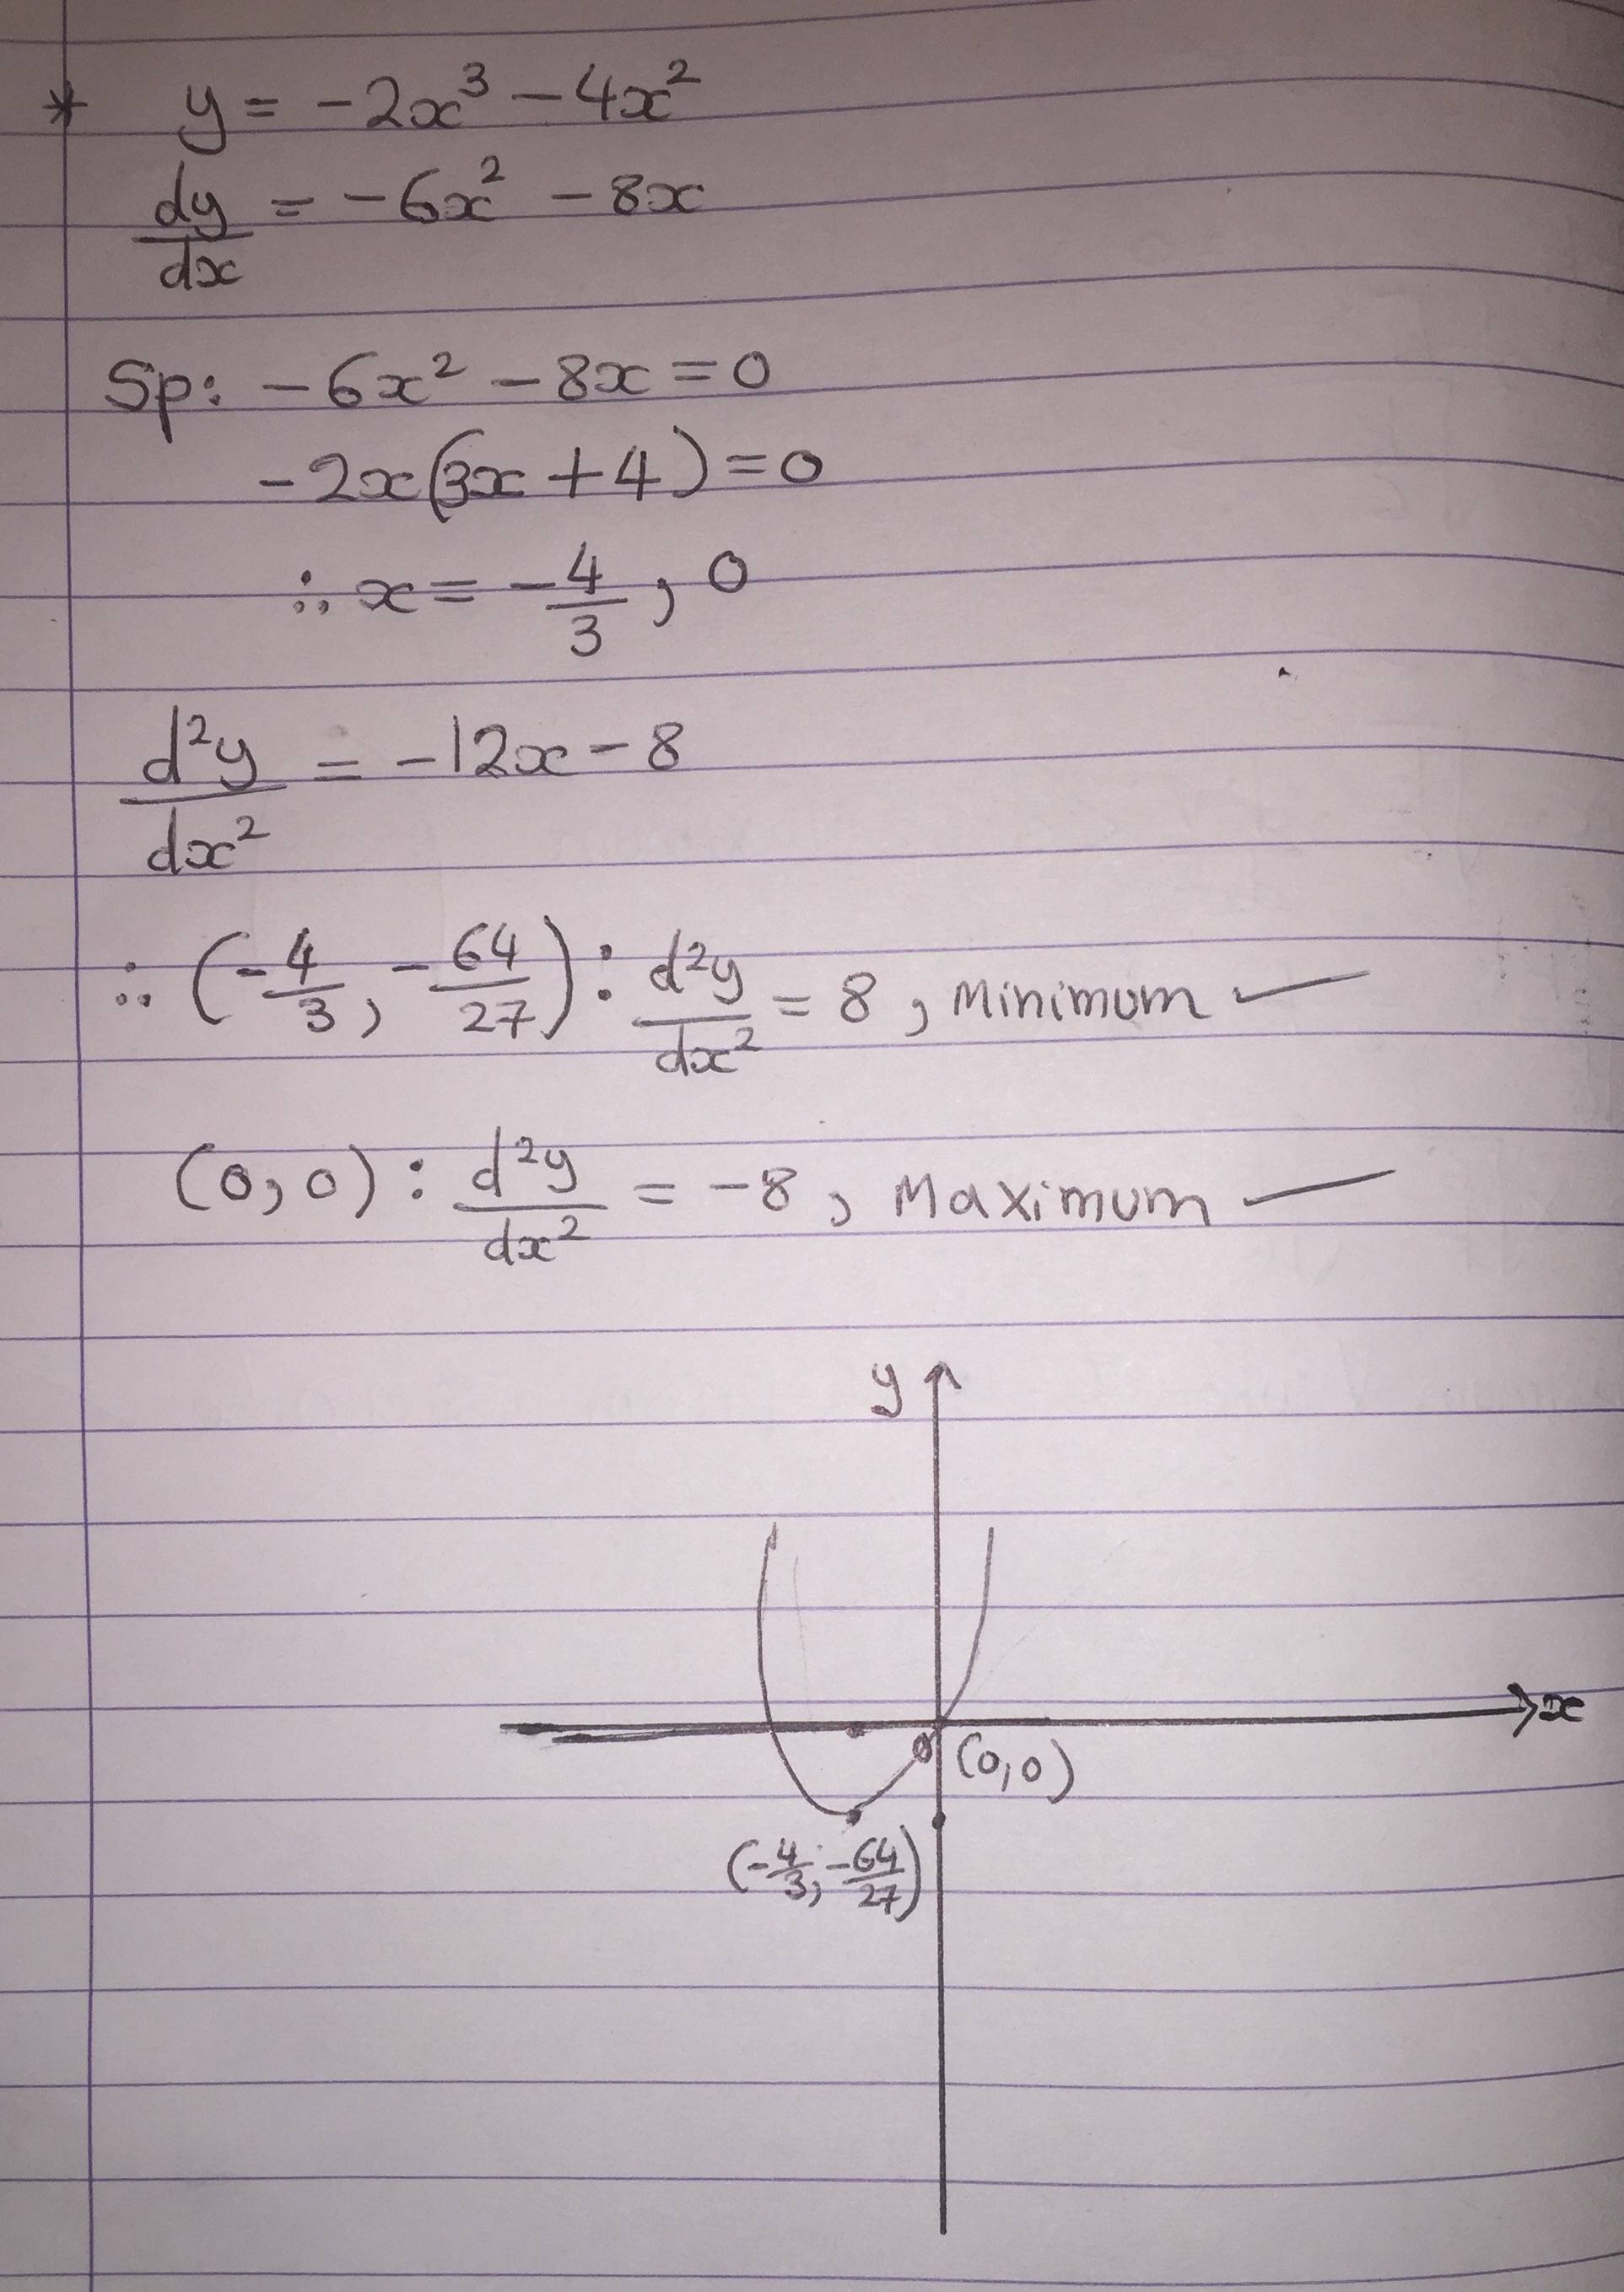 * y = -2x³ - 4x²
dy/dx = -6x² - 8x
Sp: -6x² - 8x = 0
-2x(3x + 4) = 0
∴ x = -4/3, 0
d²y/dx² = -12x - 8
∴ (-4/3, -64/27): d²y/dx² = 8, Minimum
(0,0): d²y/dx² = -8, Maximum
y
x
0 (0,0)
(-4/3, -64/27)